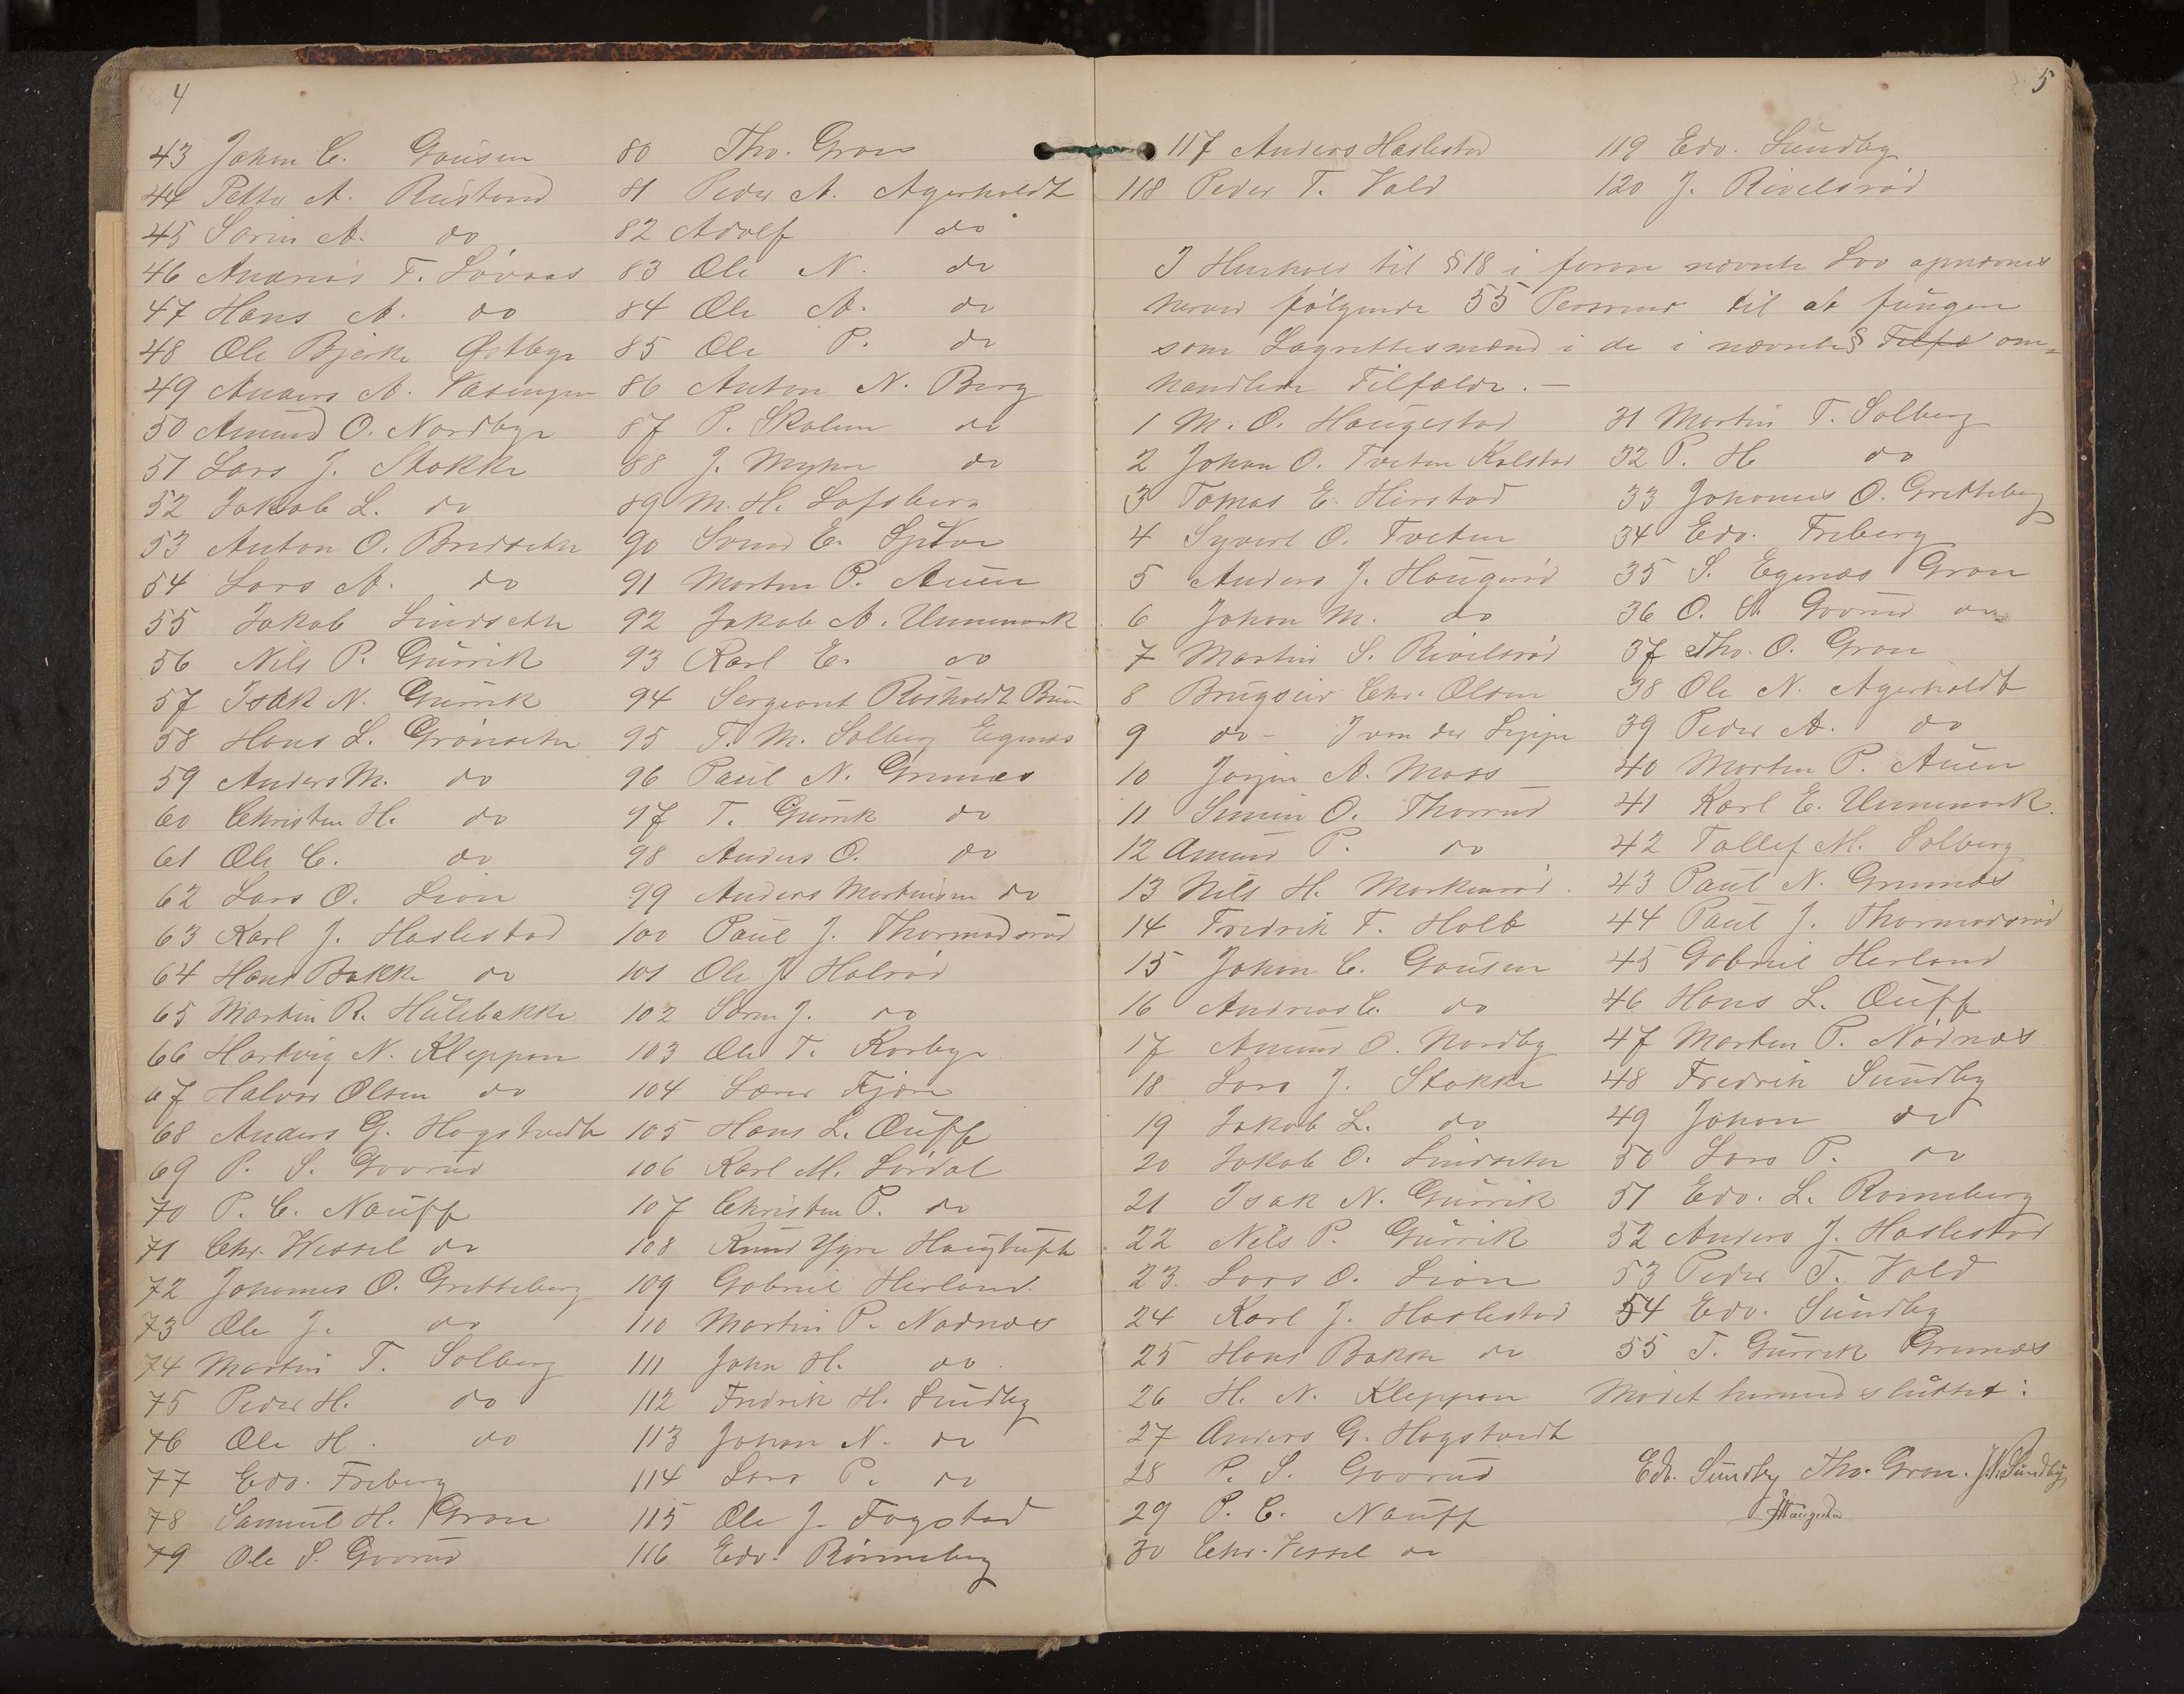 4
43 Johan C. Gausen
44 Petter A. Rustand
45 Sørin A. do
46 Andreas T. Løvaas
47 Hans A. do
48 Ole Bjerke Østbye
49 Anders A. Vasengen
50 Amund O. Nordbye
51 Lars J. Stokke
52 Jakob L. do
53 Anton O. Bredseter
54 Lars A. do
55 Jakob Lindseter
56 Nils P. Gurrik
57 Isak N. Gurrik
58 Hans L. Grønseter
59 Anders M. do
60 Christen H. do
61 Ole C. do
62 Lars O. Lion
63 Karl J. Haslestad
64 Hans Bakke do
65 Martin R. Hulebakke
66 Hartvig N. Kleppan
67 Halvor Olsen do
68 Anders G. Hogstvedt
69 P. S. Govrud
70 P. C. Nauff
71 Chr. Wessel do
72 Johannes O. Gretteberg
73 Ole J. do
74 Martin T. Solberg
75 Peder H. do
76 Ole H. do
77 Edv. Freberg
78 Samuel H. Gran
79 Ole S. Govrud
80 Tho. Gran
81 Peder A. Agerholdt
82 Adolf do
83 Ole N. do
84 Ole A. do
85 Ole P. do
86 Anton N. Berg
87 P. Skalum do
88 J. Myhre do
89 M. H. Lofsberg
90 Svend E.
91 Morten P. Auen
92 Jakob A. Unnemork
93 Karl E. do
94 Sergeant Røsholdt Bruu
95 T. M. Solberg Egenæs
96 Paul N. Grennæs
97 T. Gurrik do
98 Anders O. do
99 Anders Martinsen do
100 Paul J. Thormodsrød
101 Ole J. Halrød
102 Søren J. do
103 Ole T. Korbye
104 Lærer Fjære
105 Hans L. Auff
106 Karl M. Lørdal
107 Christen P. do
108 Knud Ygre Haugtuft
109 Gabriel Herland
110 Martin P. Nadnæs
111 John H. do
112 Fredrik H. Sundby
113 Johan N. do
114 Lars P. do
115 Ole J. Fogstad
116 Edv. Rønneberg
5
117 Anders Haslestad
118 Peder T. Vold
119 Edv. Sundby
120 J. Rivelsrød
I Henhold til § 18 i foran nævnte Lov opnævnes
herved følgende 55 Personer til at fungere
som Lagrettesmænd i de i nævnte § Tilfæ om=
handlede Tilfælde. —
1 M. O. Haugestad
2 Johan O. Tveten Kolstad
3 Tomas E. Hirstad
4 Syvert O. Tveten
5 Anders J. Haugerød
6 Johan M. do
7 Martin S. Rivelsrød
8 Brugseier Chr. Olsen
9 do - J von der Lippe
10 Jørgen A. Moss
11 Simen O. Thorrud
12 Amund P. do
13 Nils H. Morkenrød
14 Fredrik F. Holt
15 Johan C. Gausen
16 Andreas C. do
17 Amund O. Nordby
18 Lars J. Stokke
19 Jakob L. do
20 Jakob O. Lindseter
21 Isak N. Gurrik
22 Nils P. Gurrik
23. Lars O. Lion
24 Karl J. Haslestad
25 Hans Bakke do
26 H. N. Kleppan
27 Anders G. Hogstvedt
28 P. S. Govrud
29 P. C. Nauff
30 Chr. Vessel do
31 Martin T. Solberg
32 P. H do
33 Johannes O. Gretteberg
34 Edv. Freberg
35 S. Egenæs Gran
36 O. S. Govrud do
37 Tho. O. Gran
38 Ole N. Agerholdt
39 Peder A. do
40 Morten P. Auen
41 Karl E. Unnemork.
42 Tollef M. Solberg
43 Paul N. Grennæs
44 Paul J. Thormodsrød
45 Gabriel Herland
46 Hans L. Auff
47 Morten P. Nødnæs
48 Fredrik Sundby
49 Johan do
50 Lars P. do
51 Edv. L. Ronneberg
52 Anders J. Haslestad
53 Peder T. Vold
54 Edv. Sundby
55 T. Gurrik Grennæs
Mødet hermed sluttet:
Edv. Sundby Tho. Gran. J.N. Sundby,
Haugestad